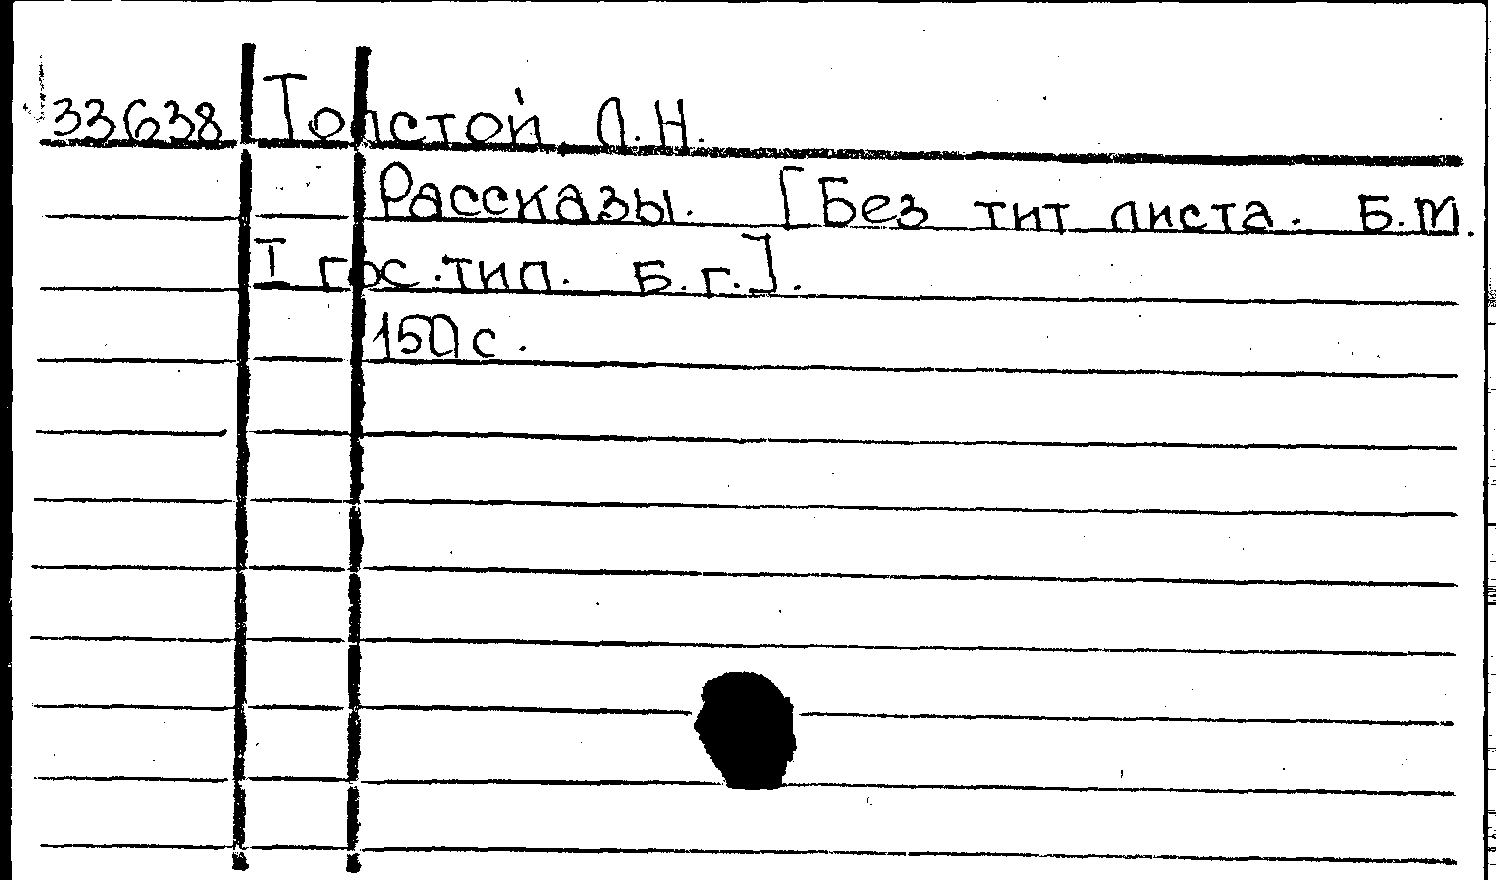 33638 Толстой Л.Н.
Рассказы. [Без тит листа. Б.м.
I гос.тип. Б.г.].
150 с.